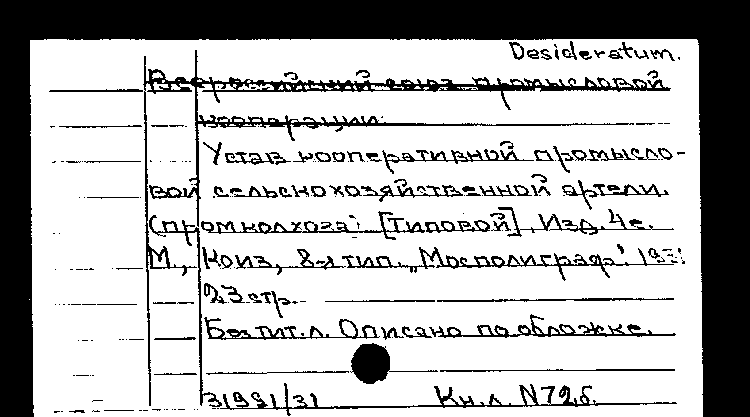 Desideratum.
Всероссийский союз промысловой
кооперации.
Устав кооперативной промысло-
вой сельскохозяйственной артели.
(промколхоза) [Типовой]. Изд. 4е.
М., Коиз, 8-я тип. „Мосполиграф". 1931
23 стр.
Без тит. л. Описано по обложке.
31991/31 Кн. л. N72б.